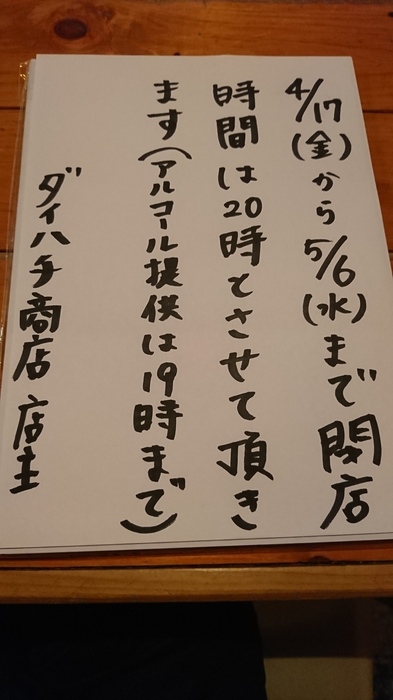 4/17(金)から5/6(水)まで閉店
時間は20時とさせて頂き
ます(アルコール提供は19時まで)
ダイハチ商店 店主